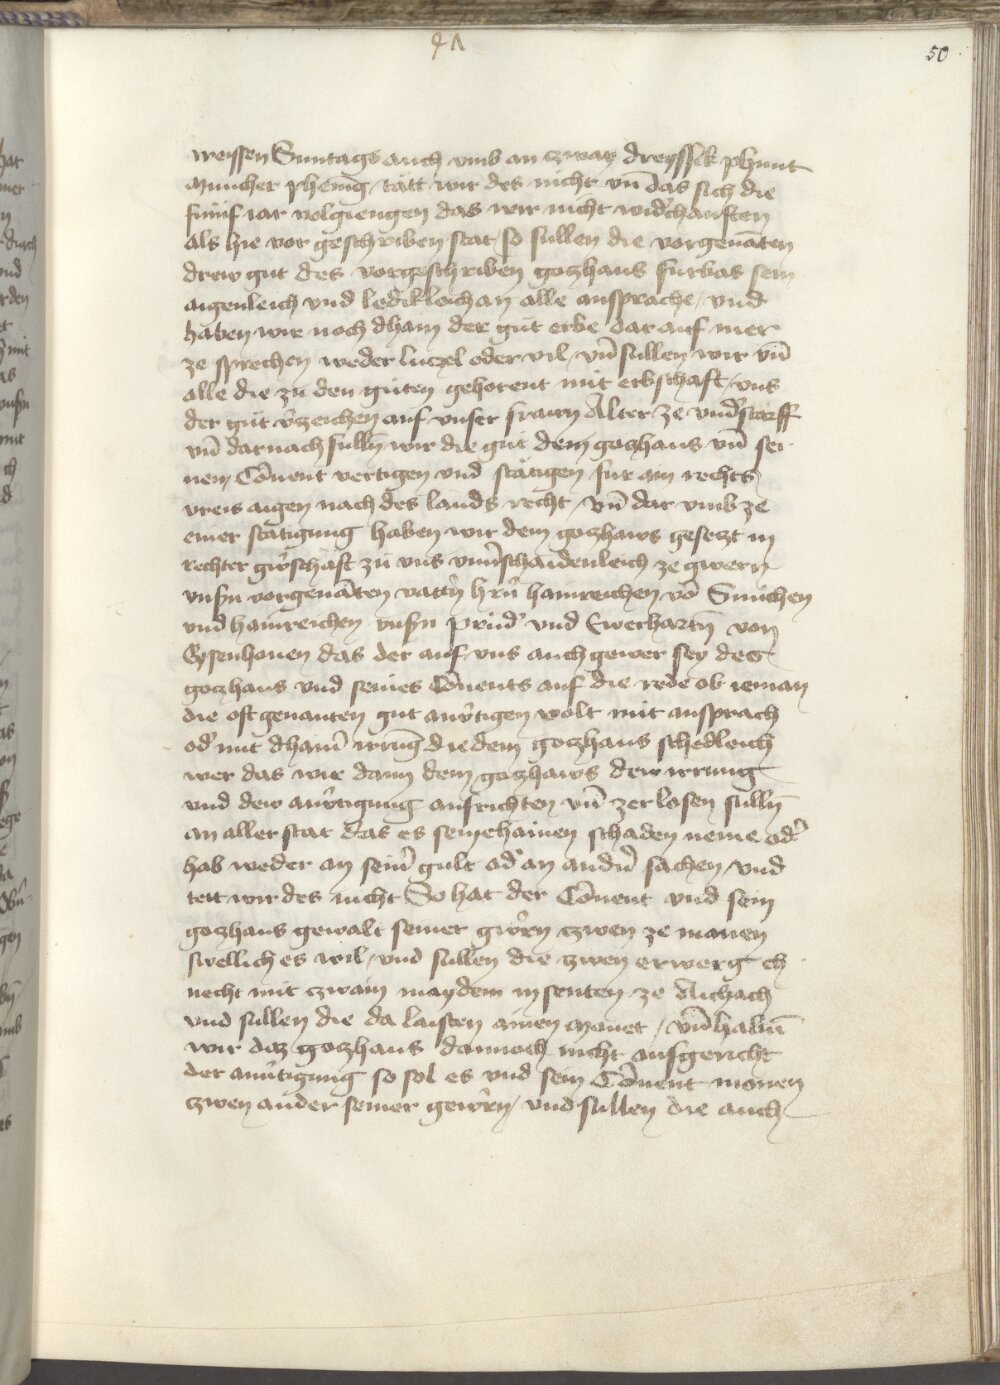 41
50
weyssen Suntags auch vmb an zway dreyssik phunt
Muncher phening / tätt wir des nicht vn̄ das sich die
funf iar volgiengen das wir nicht wid'chauften
als hie vor geschriben stat / so sullen die vorgenāten
drew gut des vorgeschriben gozhaus furbas sein
aigenleich vnd ledikleich an alle ansprache / vnd
haben wir noch dhain der gut erbe dar auf mer
ze sprechen weder luczel oder vil / vn̄ sullen wir vn̄
alle die zu den guten gehorent mit erbschaft / vns
der gut v'zeichen auf vnser frawn Alter ze vnd'storff
vn̄ darnach sull'n wir die gut dem gozhaus vn̄ sei
nem Cōuent vertigen vnd stätigen fur ain rechts
vreis aigen nach des lands recht / vn̄ dar vmb ze
einer stätigung haben wir dem gozhaws gesetzt in
rechter gw'schaft zu vns vnu'schaidenleich ze gwern
vnsn vorgenāten vatt'n h'rn hainreichen vō Smichen
vnd hainreichen vnsn prud' vnd Ewerhart'n von
Eysenhouen das der auf vns auch gewer sey des
gozhaus vnd seines Cōuents auf die rede ob ieman
die oft genanten gut anv'tigen wolt mit ansprach
od' mit dhain' irrūg die dem gozhaus schedleich
wer das wir dann dem gozhaws dew irrung
vnd dew anv'tigung ausrichten vn̄ zerlosen sull'n
an aller stat das es sein chainen schaden neme od'
hab weder an sein' gult od' an and'n sachen / vnd
tett wir des nicht So hat der Cōuent vnd sein
gozhaus gewalt seiner gw'rn zwen ze manen
swellich es wil / vnd sullen die zwen erwerg ch
necht mit zwain mayden in senten ze Aichach
vnd sullen die da laisten ainen Monet / vn̄ habn̄
wir daz gozhaus dannoch nicht ausgericht
der anv'tigung so sol es vnd sein Cōuent monen
zwen ander seiner gew'rn / vnd sullen die auch